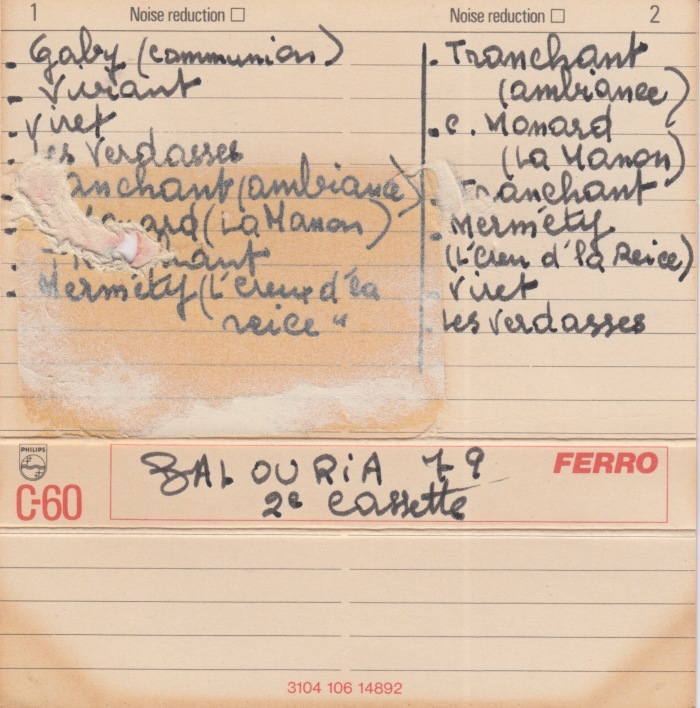 1 Noise reduction
Gaby (communion)
Viviant
Viret
Les Verdasses
Tranchant (ambiance)
Monard (La Manon)
Tranchant
Merméty (L'Creux d'la
reice"
Noise reduction 2
Tranchant
(ambiance)
C. Monard
(La Manon)
Tranchant
Merméty
(L'Creu d'la Reice)
Viret
Les Verdasses
PHILIPS
C-60
BALOURIA 79
2e Cassette
FERRO
3104 106 14892